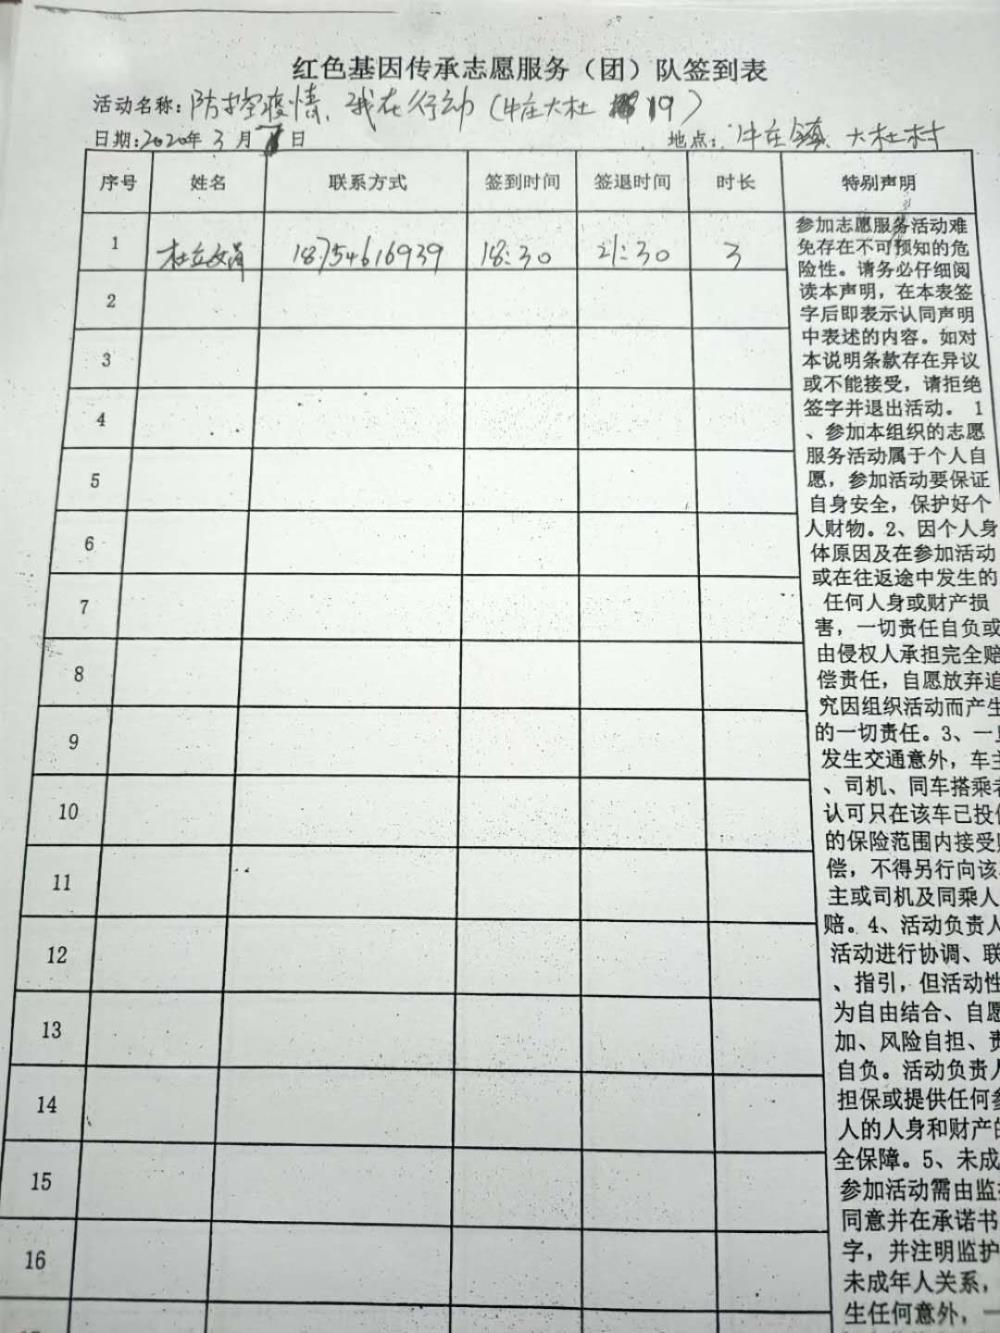 红色基因传承志愿服务（团）队签到表
活动名称：防控疫情，我在行动（牛庄大杜 19）
日期：2020年 3 月 日 地点：牛庄镇大杜村
序号 姓名 联系方式 签到时间 签退时间 时长 特别声明
1 杜立 18754616939 18:30 21:30 3
2
3
4
5
6
7
8
9
10
11
12
13
14
15
16
参加志愿服务活动难
免存在不可预知的危
险性。请务必仔细阅
读本声明，在本表签
字后即表示认同声明
中表述的内容。如对
本说明条款存在异议
或不能接受，请拒绝
签字并退出活动。 1
、参加本组织的志愿
服务活动属于个人自
愿，参加活动要保证
自身安全，保护好个
人财物。2、因个人身
体原因及在参加活动
或在往返途中发生的
任何人身或财产损
害，一切责任自负或
由侵权人承担完全赔
偿责任，自愿放弃追
究因组织活动而产生
的一切责任。3、一旦
发生交通意外，车主
、司机、同车搭乘者
认可只在该车已投保
的保险范围内接受
偿，不得另行向该
主或司机及同乘人
赔。4、活动负责人
活动进行协调、联
、指引，但活动性
为自由结合、自愿
加、风险自担、责
自负。活动负责人
担保或提供任何参
人的人身和财产的
全保障。5、未成
参加活动需由监
同意并在承诺书
字，并注明监护
未成年人关系，
生任何意外，一